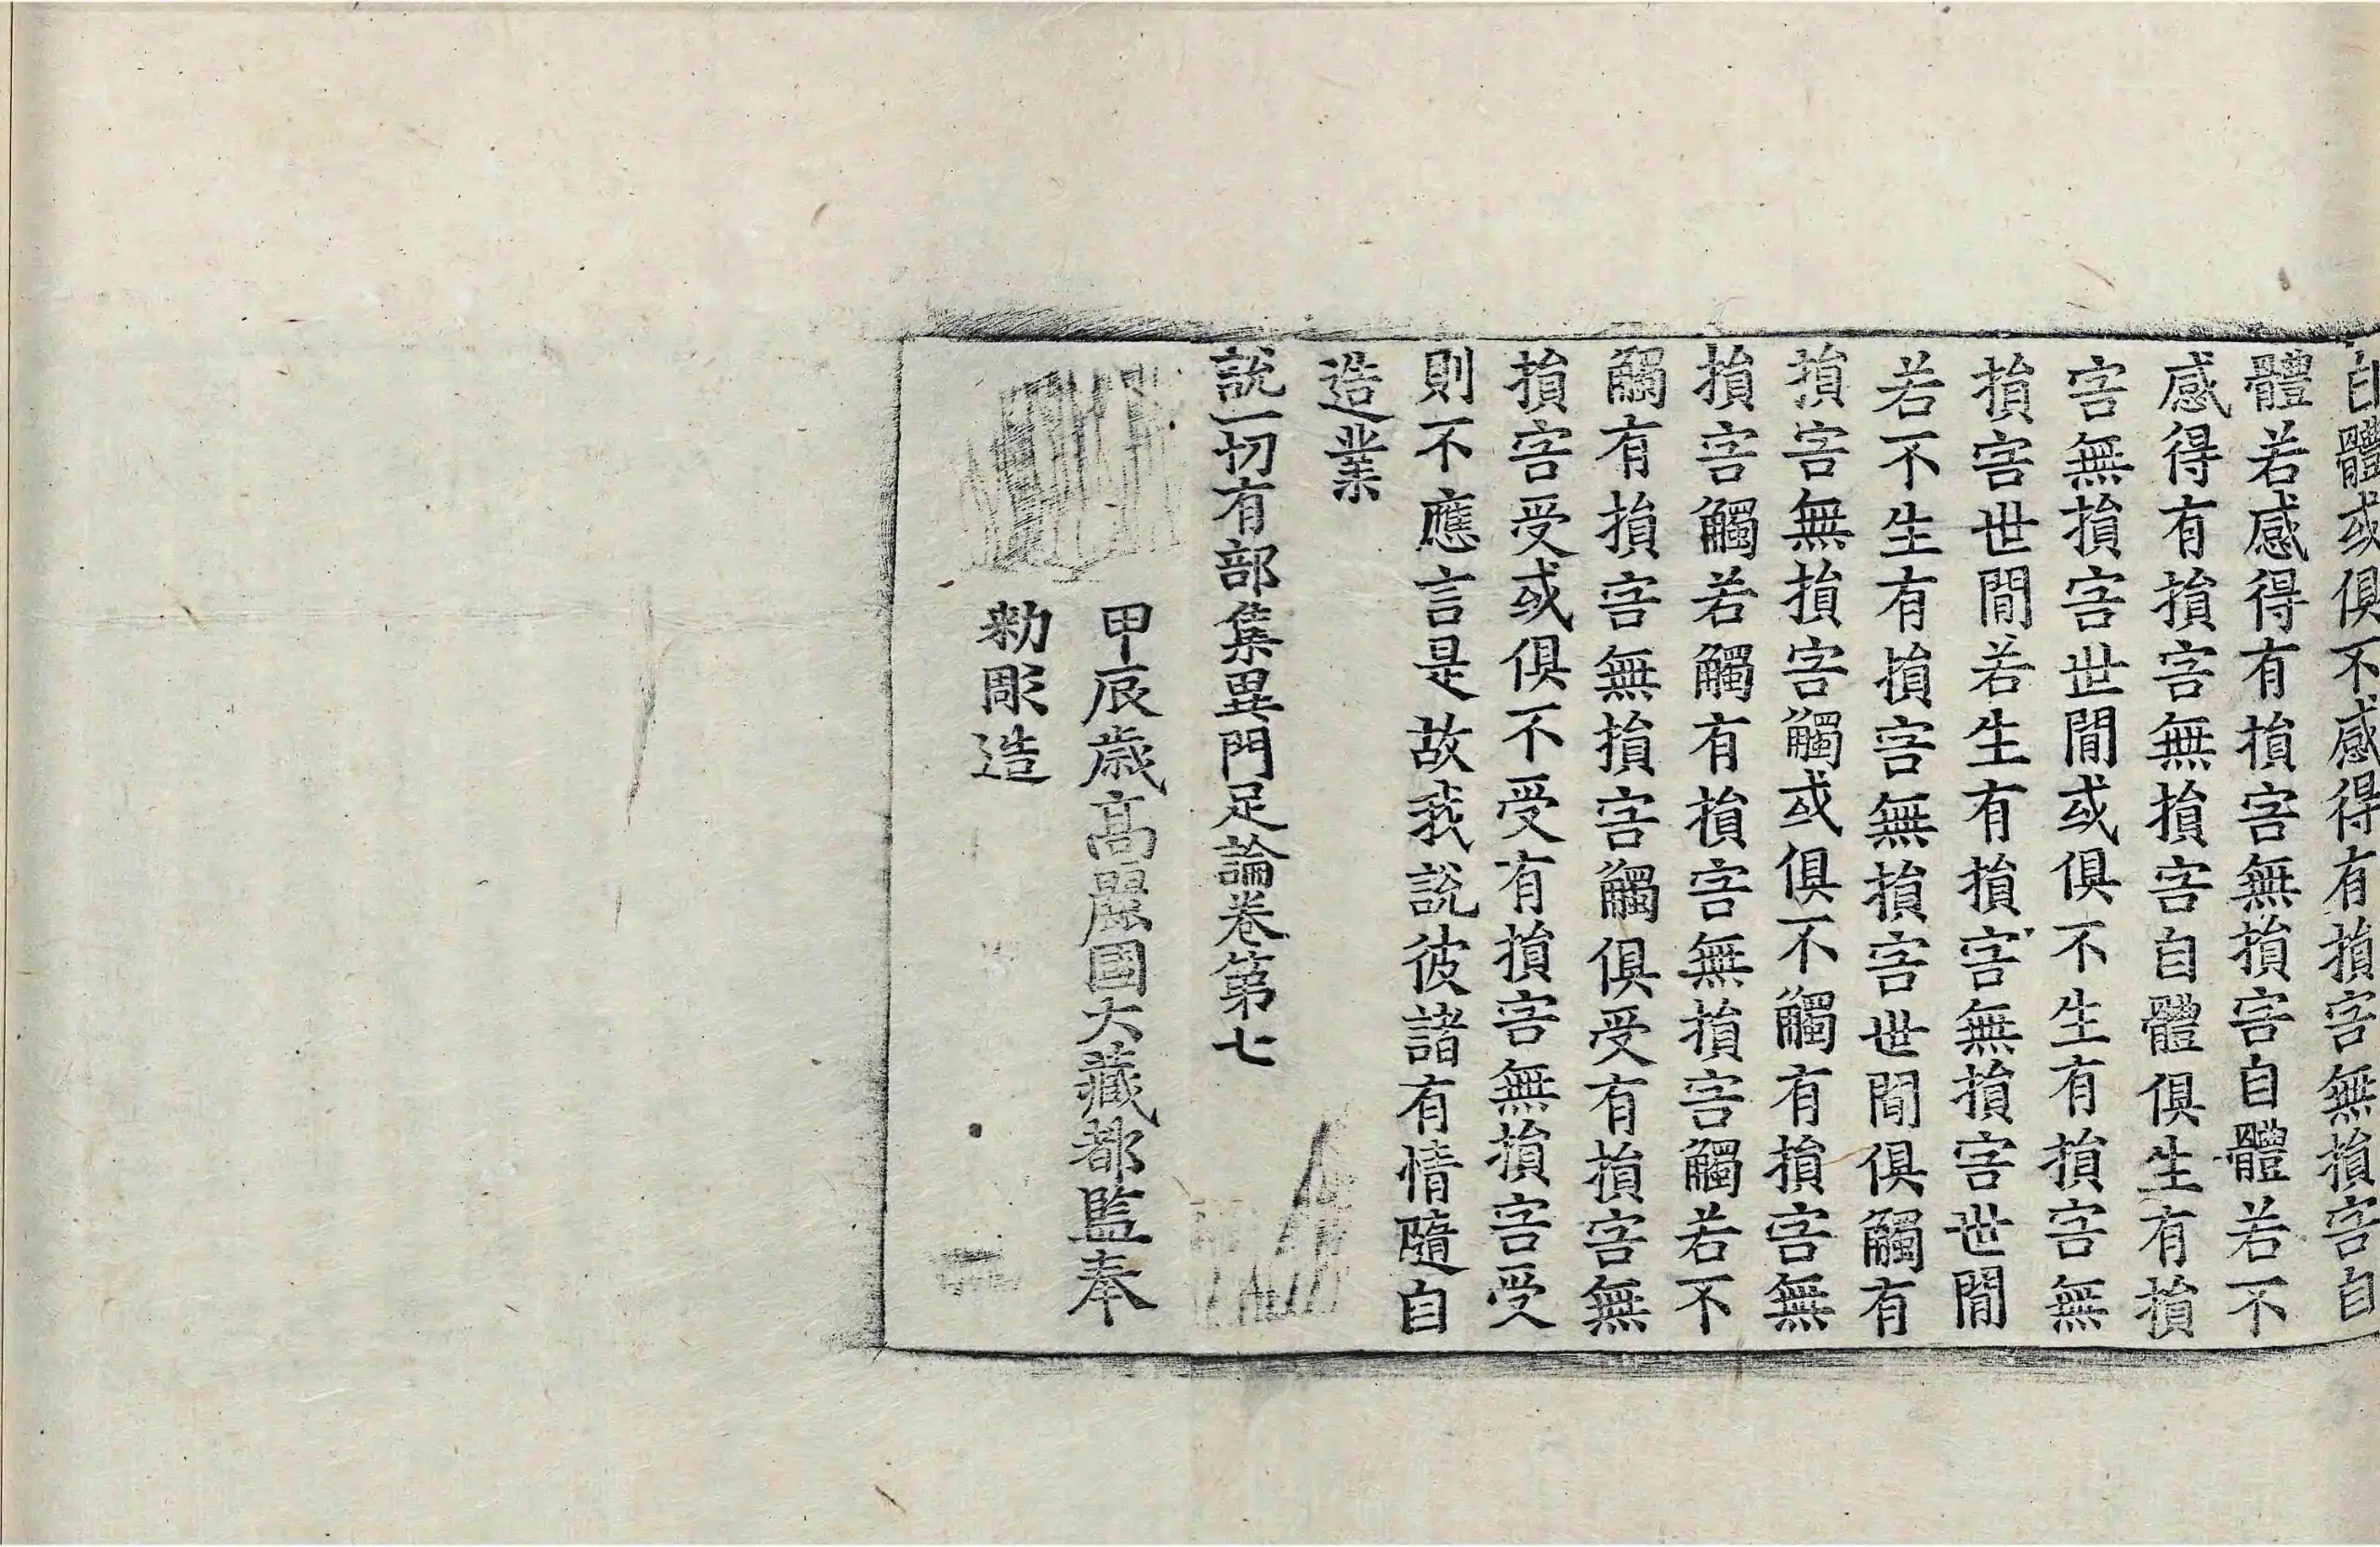 自體或俱不感得有損害無損害自
體若感得有損害無損害自體若不
感得有損害無損害自體俱生有損
害無損害世間或俱不生有損害無
損害世間若生有損害無損害世間
若不生有損害無損害世間俱觸有
損害無損害觸或俱不觸有損害無
損害觸若觸有損害無損害觸若不
觸有損害無損害觸俱受有損害無
損害受或俱不受有損害無損害受
則不應言是故我說彼諸有情隨自
造業
說一切有部集異門足論卷第七
甲辰歲高麗國大藏都監奉
勅彫造